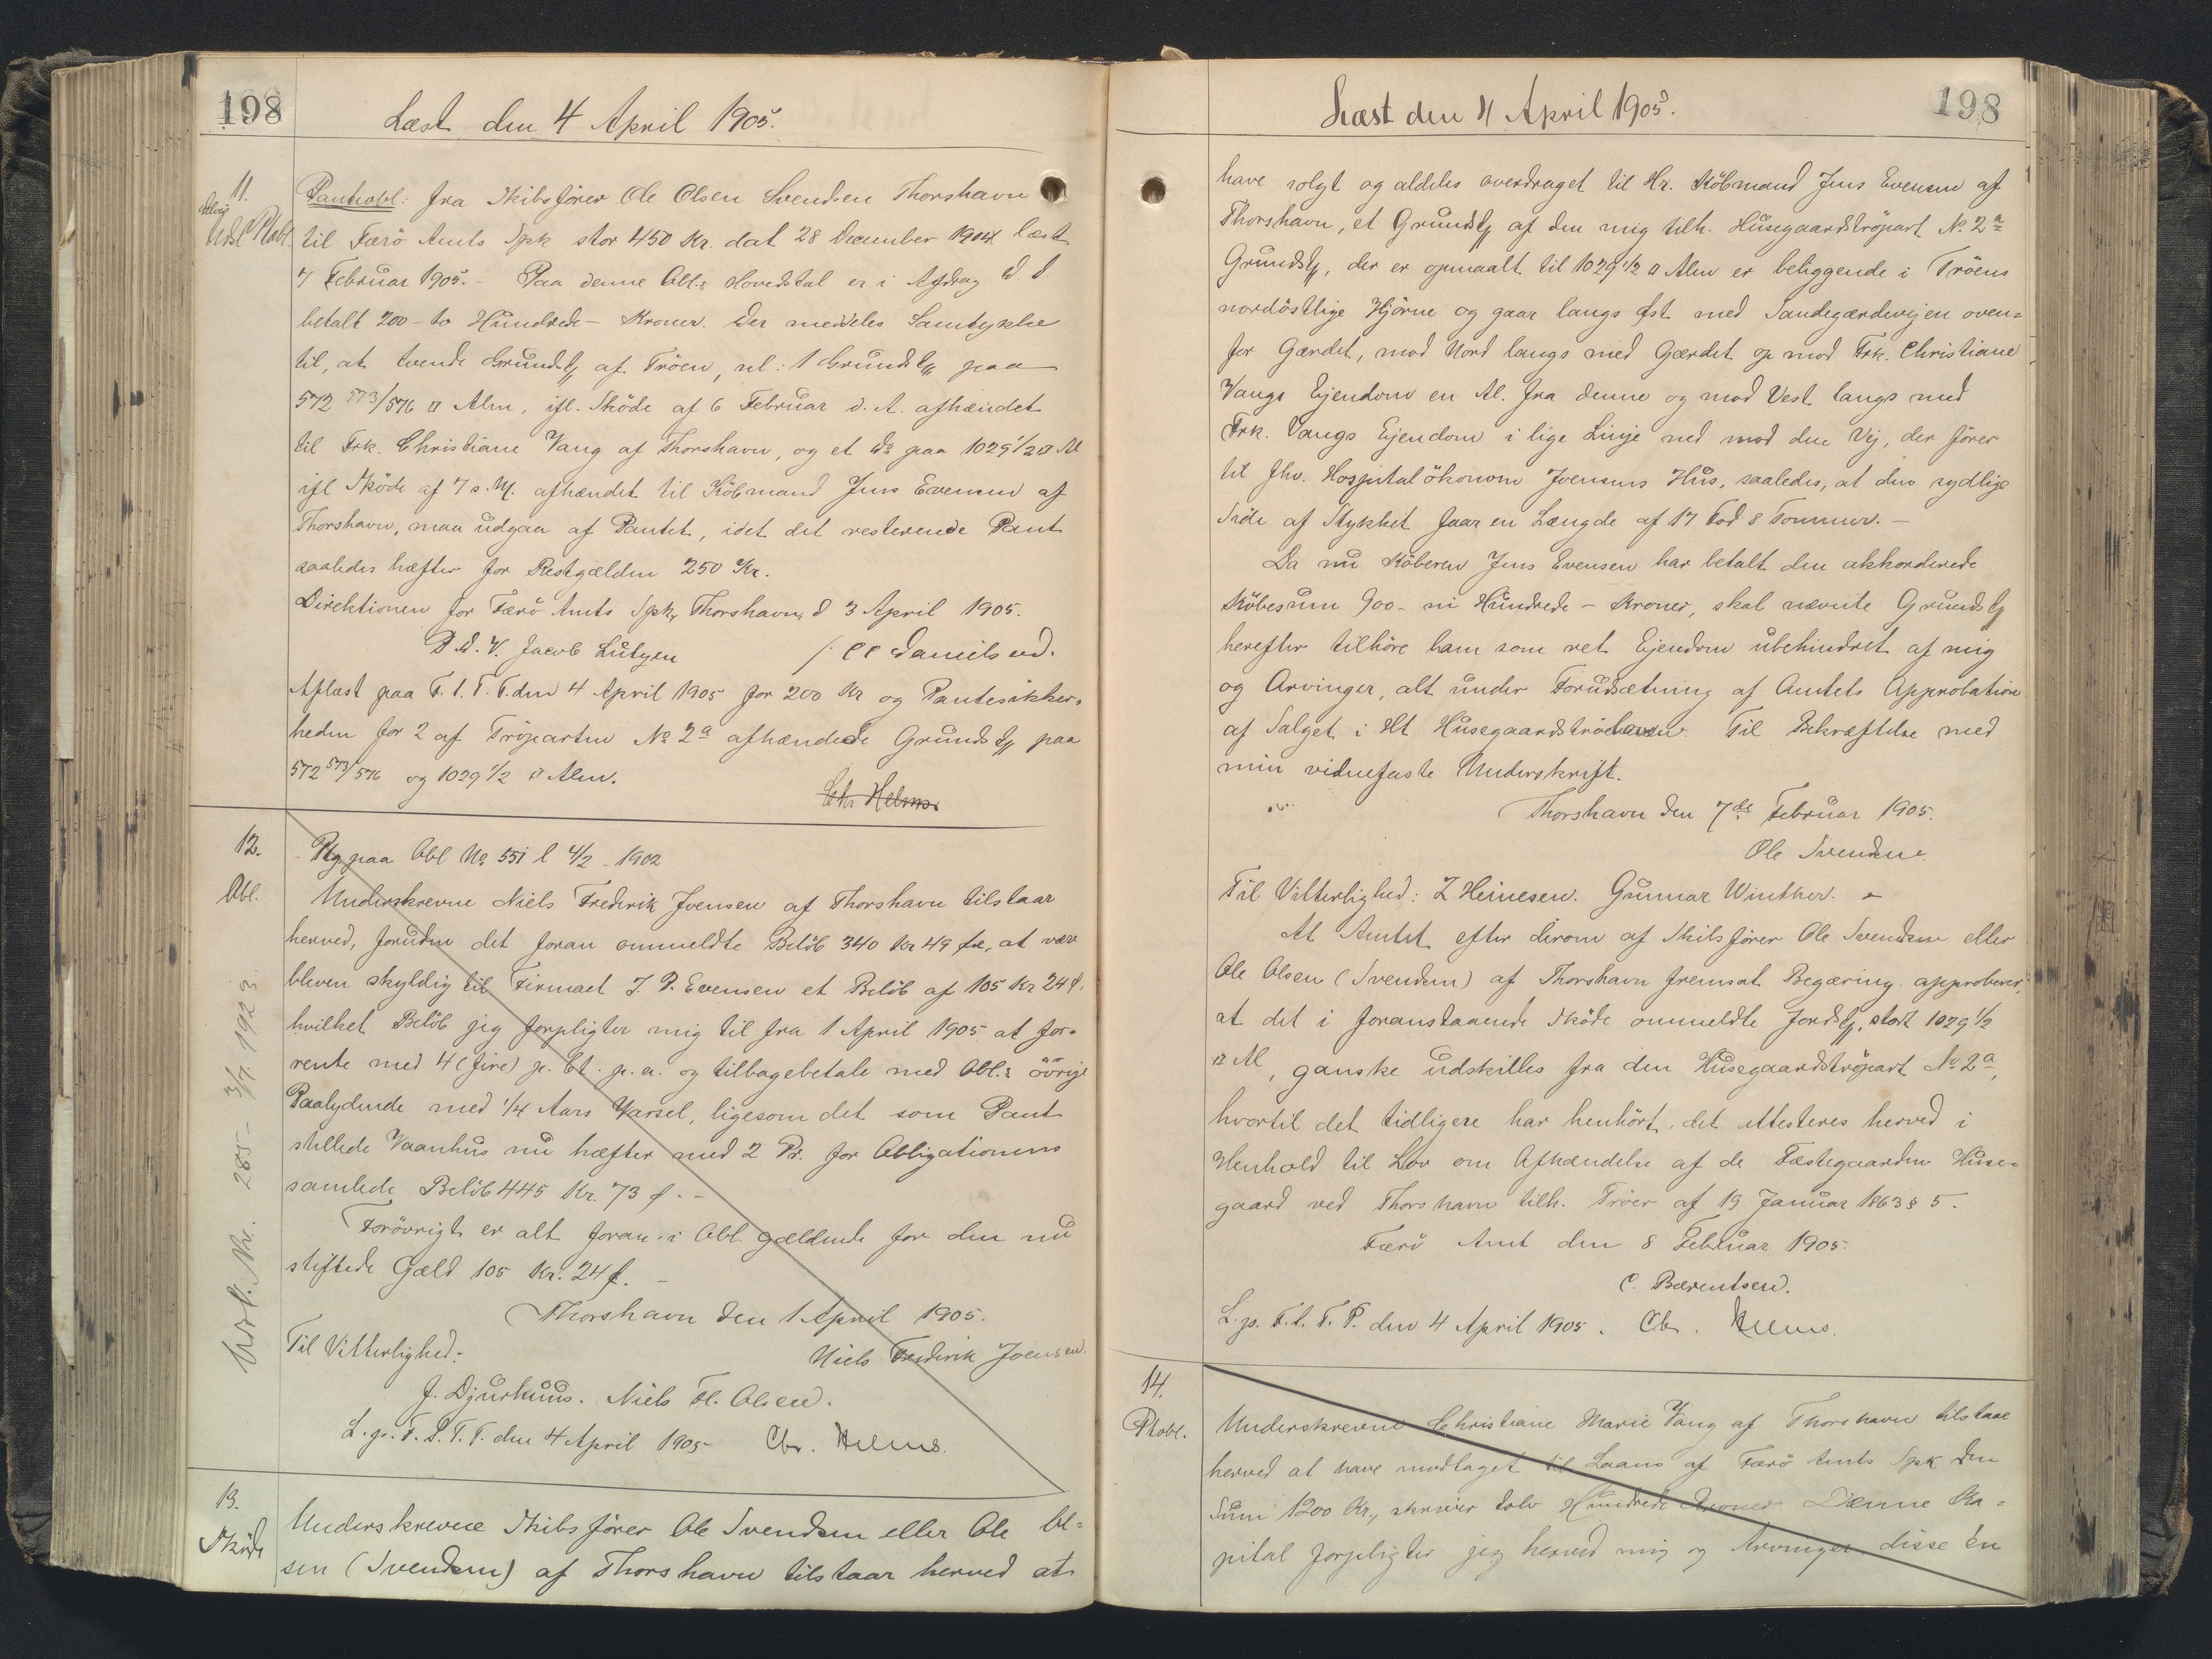 198
Læst den 4 April 1905.
11.
Udsl Ptobl.
Pantobl: fra Skibsfører Ole Olsen Svendsen Thorshavn
til Færö Amts Spk stor 450 Kr. dat 28 December 1904 læst
7 Februar 1905. - Paa denne Obl.s Hovedstol er i Afdrag d d
betalt 200 - to Hundrede - Kroner. Der meddeles Samtykke
til, at tvende Grundst. af Tröen, nl: 1 Grundst. paa
572 573/576 □ Alen, ifl. Sköde af 6 Februar d. A. afhændet
til Frk. Christiane Vang af Thorshavn, og et do paa 1029 1/2 □ Al
ifl Sköde af 7 s. M. afhændet til Köbmand Jens Evensen af
Thorshavn, maa udgaa af Pantet, idet det resterende Pant
saaledes hæfter for Restgælden 250 Kr.
Direktionen for Færö Amts Spk, Thorshavn, d 3 April 1905.
P. d. V. Jacob Lützen / CC Danielsen.
Aflæst paa F. S. T. P. den 4 April 1905 for 200 Kr og Pantesikker-
heden for 2 af Tröparten No 2a afhændede Grundst. paa
572 573/576 og 1029 1/2 □ Alen.
Chr Helms.
12.
Obl.
Ptg paa Obl No 551 l 4/2 - 1902
Underskrevne Niels Frederik Joensen af Thorshavn tilstaar
herved, foruden det foran ommeldte Belöb 340 Kr 49 Øre, at være
bleven skyldig til Firmaet J. P. Evensen et Belöb af 105 Kr 24 Ø.
hvilket Belöb jeg forpligter mig til fra 1 April 1905 at for-
rente med 4 (fire) p. Ct. p. a. og tilbagebetale med Obl.s övrige
Paalydende med 1/4 Aars Varsel, ligesom det som Pant
stillede Vaanhus nu hæfter med 2 Pr. for Obligationens
samlede Belöb 445 Kr. 73 Ø. -
Forövrigt er alt foran i Obl. gældende for den nu
stiftede Gæld 105 Kr. 24 Ø. -
Thorshavn den 1 April 1905.
Til Vitterlighed: Niels Frederik Joensen.
J. Djurhuus. Niels Fl. Olsen.
L. p. F. S. T. P. den 4 April 1905 Chr. Helms.
Udsl. Nr. 285 - 3/7. 1923
13.
Sköde
Underskrevne Skibsfører Ole Svendsen eller Ole Ol-
sen (Svendsen) af Thorshavn tilstaar herved at
198
Læst den 4 April 1905.
have solgt og aldeles overdraget til Hr. Köbmand Jens Evensen af
Thorshavn, et Grundst. af den mig tilh. Husegaardströpart No 2a
Grundst., der er opmaalt til 1029 1/2 □ Alen er beliggende i Tröens
nordöstlige Hjörne og gaar langs Øst med Sandegærdevejen oven-
for Gærdet, mod Nord langs med Gærdet op mod Frk. Christiane
Vangs Ejendom en Al. fra denne og mod Vest langs med
Frk. Vangs Ejendom i lige Linje ned mod den Vej, der förer
til fhv. Hospitalökonom Joensens Hus, saaledes, at den sydlige
Side af Stykket faar en Længde af 17 Fod 8 Tommer. -
Da nu Köberen Jens Evensen har betalt den akkorderede
Köbesum 900 - ni Hundrede - Kroner, skal nævnte Grundst.
herefter tilhöre ham som ret Ejendom ubehindret af mig
og Arvinger, alt under Forudsætning af Amtets Approbation
af Salget i Ht Husegaardströloven. Til Bekræftelse med
min vidnefaste Underskrift.
Thorshavn den 7de Februar 1905.
Ole Svendsen.
Til Vitterlighed: Z Heinesen. Gunnar Winther. -
At Amtet efter derom af Skibsfører Ole Svendsen eller
Ole Olsen (Svendsen) af Thorshavn fremsat Begæring approberer,
at det i foranstaaende Sköde ommeldte Jordst., stort 1029 1/2
□ Al, ganske udskilles fra den Husegaardströpart No 2a,
hvortil det tidligere har henhört, det attesteres herved i
Henhold til Lov om Afhændelse af de Fæstegaarden Huse-
gaard ved Thorshavn tilh. Tröer af 19 Januar 1863 § 5.
Færö Amt den 8 Februar 1905.
C. Bærentsen.
L. p. F. S. T. P. den 4 April 1905. Chr. Helms.
14.
Ptobl.
Underskrevne Christiane Marie Vang af Thorshavn tilstaar
herved at have modtaget til Laans af Færö Amts Spk den
Sum 1200 Kr., skriver tolv Hundrede Kroner. Denne Ka-
pital forpligter jeg herved mig og Arvinger, disse én